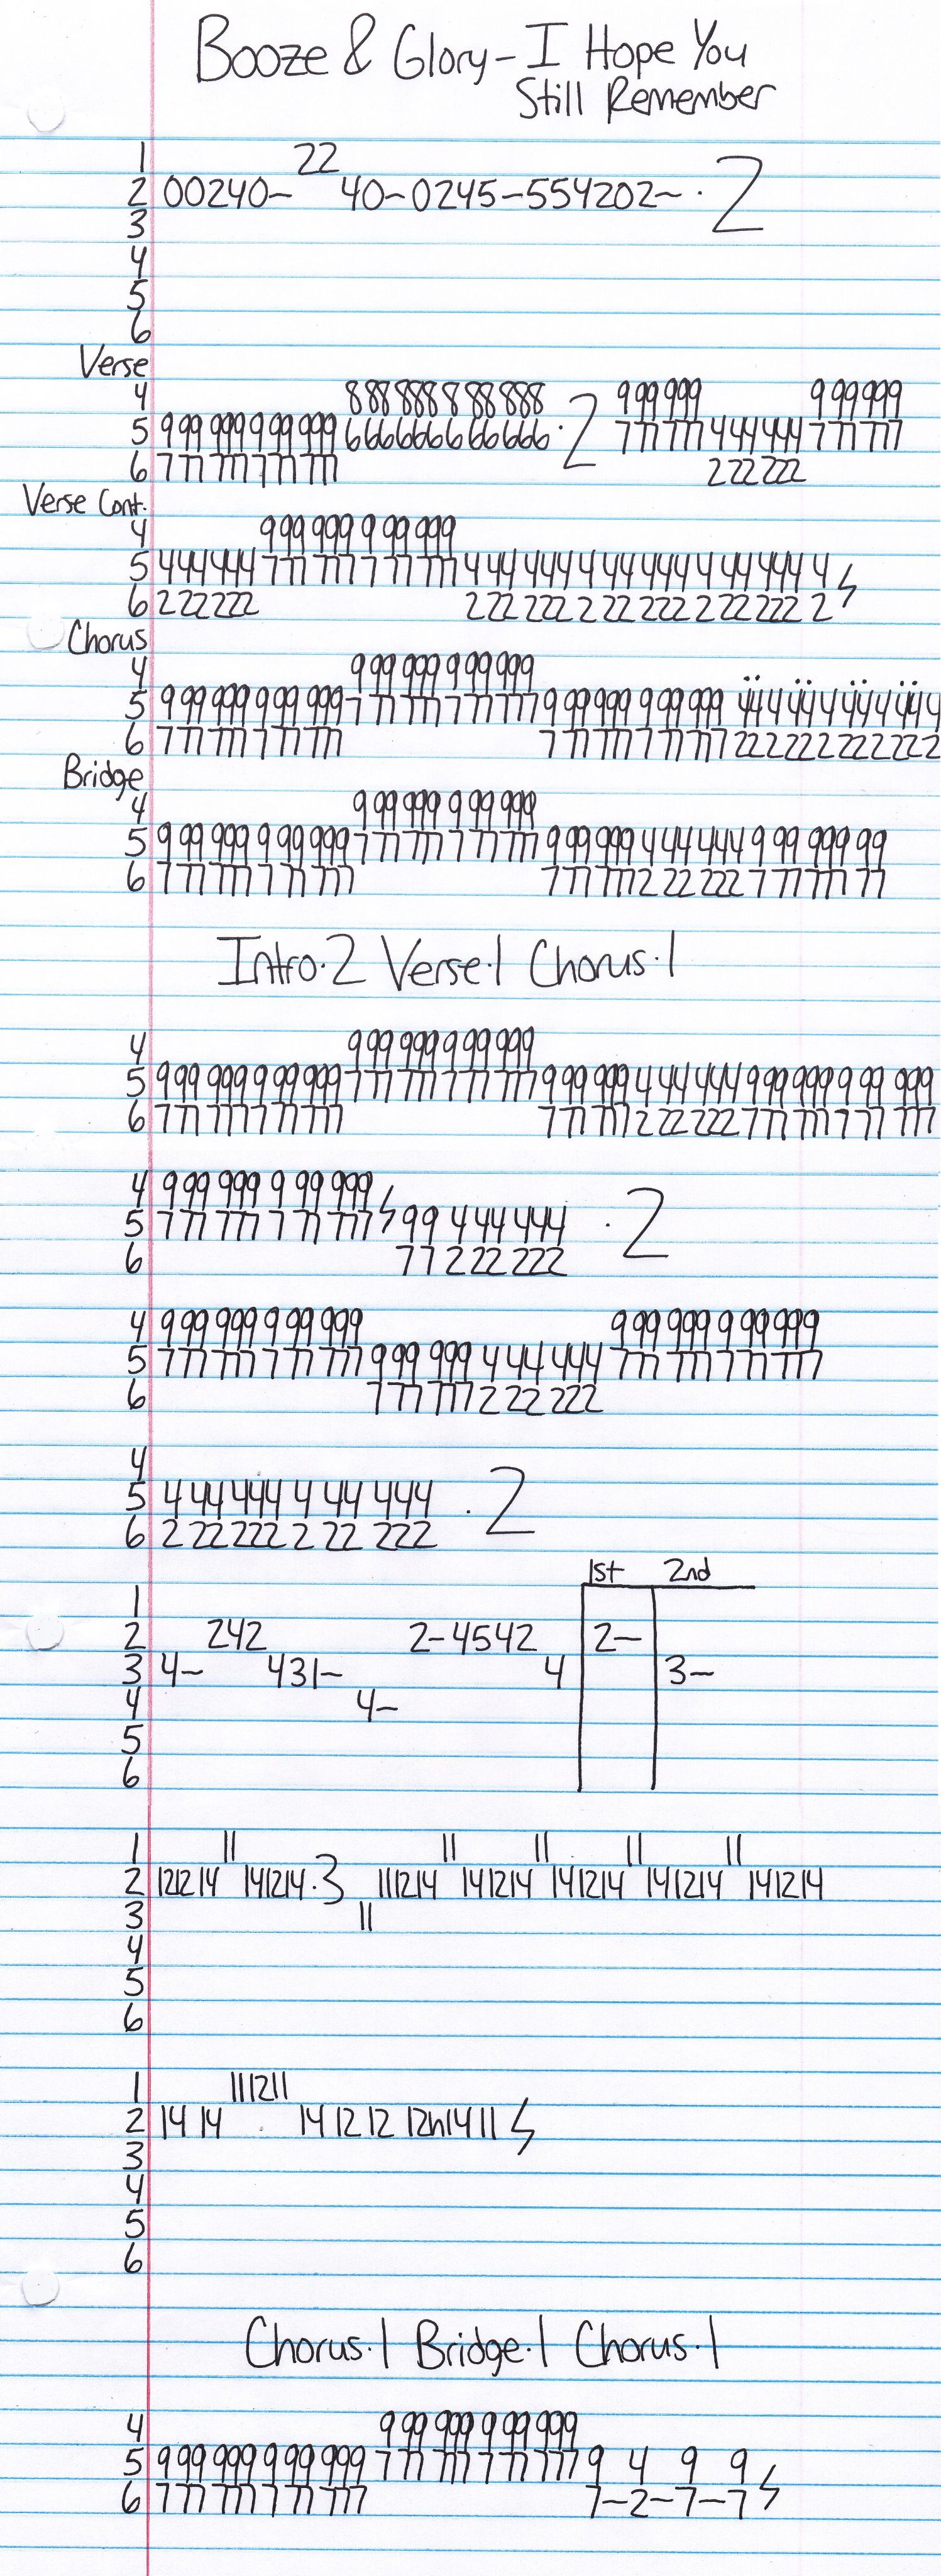 Booze & Glory - I Hope You
Still Remember
1 22
2 00240~ 40~0245-554202~ · 2
3
4
5
6
Verse
4 888888888888 999999 999999
5 999999999999 666666666666 · 2 777777 444444 777777
6 777777777777 222222
Verse Cont.
4 999999999999
5 444444 777777777777 4444444444444444444
6 222222 2222222222222222222
Chorus
4 999999999999
5 999999999999 777777777777 999999999999 444444444444
6 777777777777 777777777777 222222222222
Bridge
4 999999999999
5 999999999999 777777777777 999999 444444 99999999
6 777777777777 777777 222222 77777777
Intro·2 Verse·1 Chorus·1
4 999999999999
5 999999999999 777777777777 999999 444444 999999999999
6 777777777777 777777 222222 777777777777
4 999999999999
5 777777777777 99 444444 · 2
6 77 222222
4 999999999999 999999999999
5 777777777777 999999 444444 777777777777
6 777777 222222
4
5 444444444444 · 2
6 222222222222
1st 2nd
1
2 242 2-4542 2—
3 4~ 431~ 4 3~
4 4~
5
6
1 11 11 11 11 11
2 121214 141214·3 111214 141214 141214 141214 141214
3 11
4
5
6
1 111211
2 14 14 14 12 12 12h14 11
3
4
5
6
Chorus·1 Bridge·1 Chorus·1
4 999999999999
5 999999999999 777777777777 9 4 9 9
6 777777777777 7-2-7-7